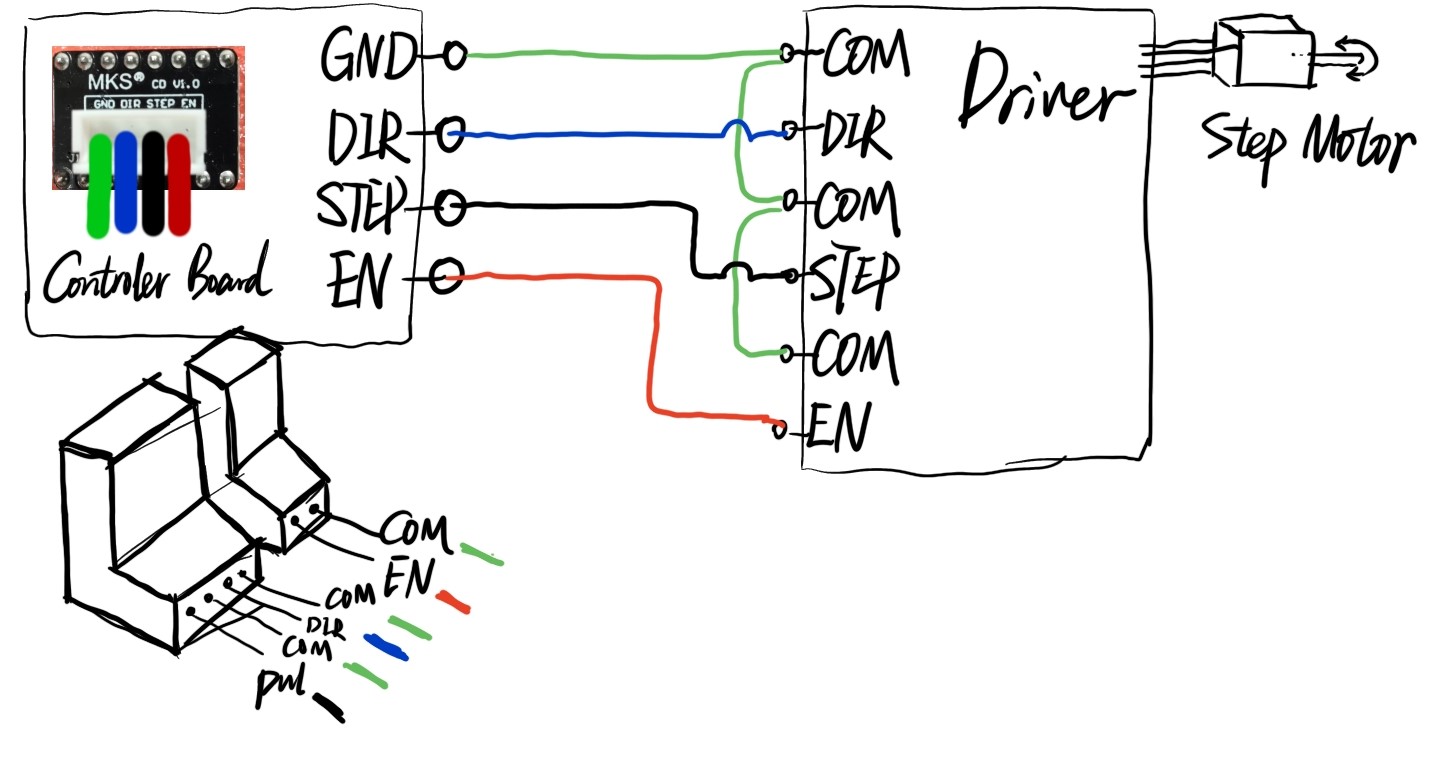 MKS® CD V1.0
GND DIR STEP EN
J1
Controler Board
GND
DIR
STEP
EN
COM
DIR
COM
STEP
COM
EN
Driver
Step Motor
COM
EN
COM
DIR
COM
pul